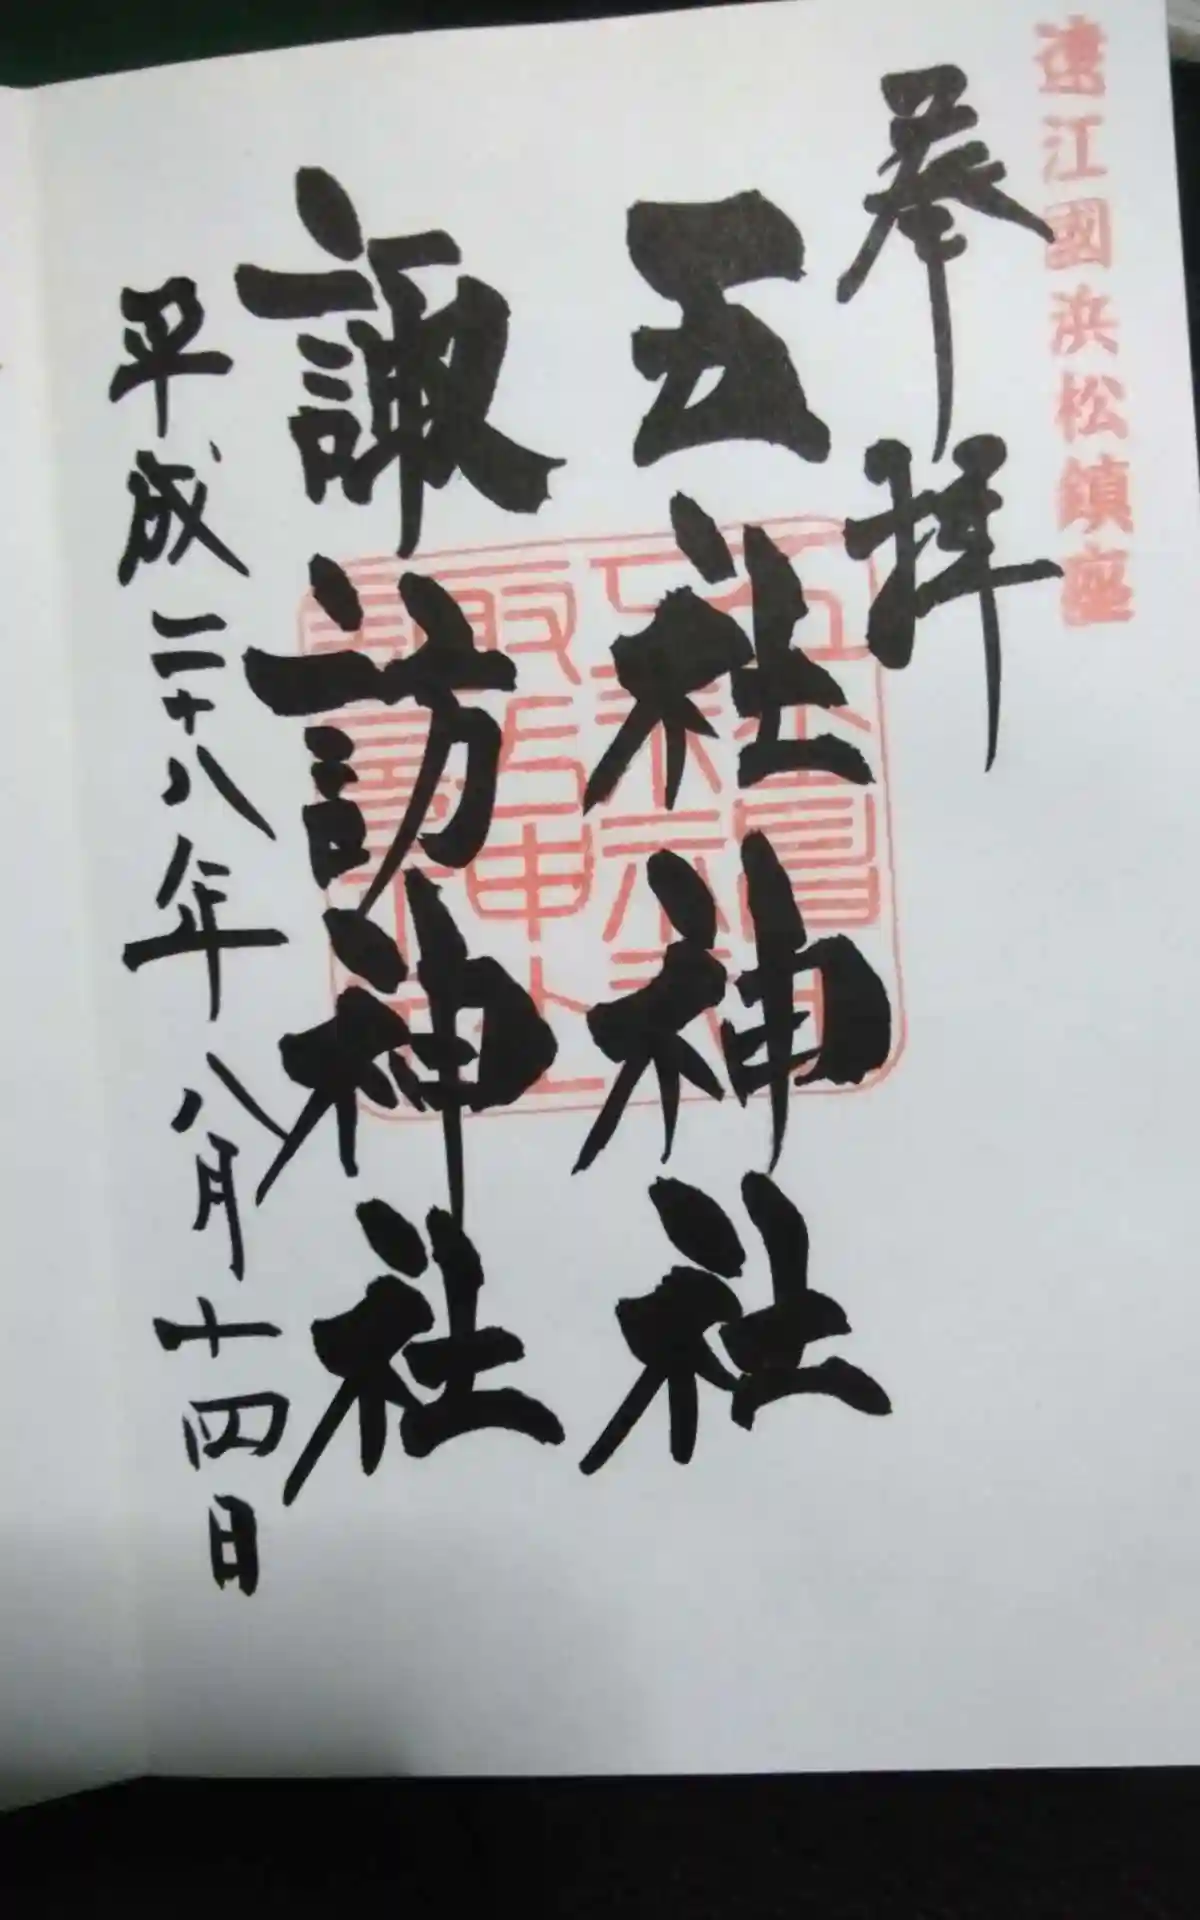 遠江國浜松鎮座
奉拝
五社神社
諏訪神社
平成二十八年八月十四日